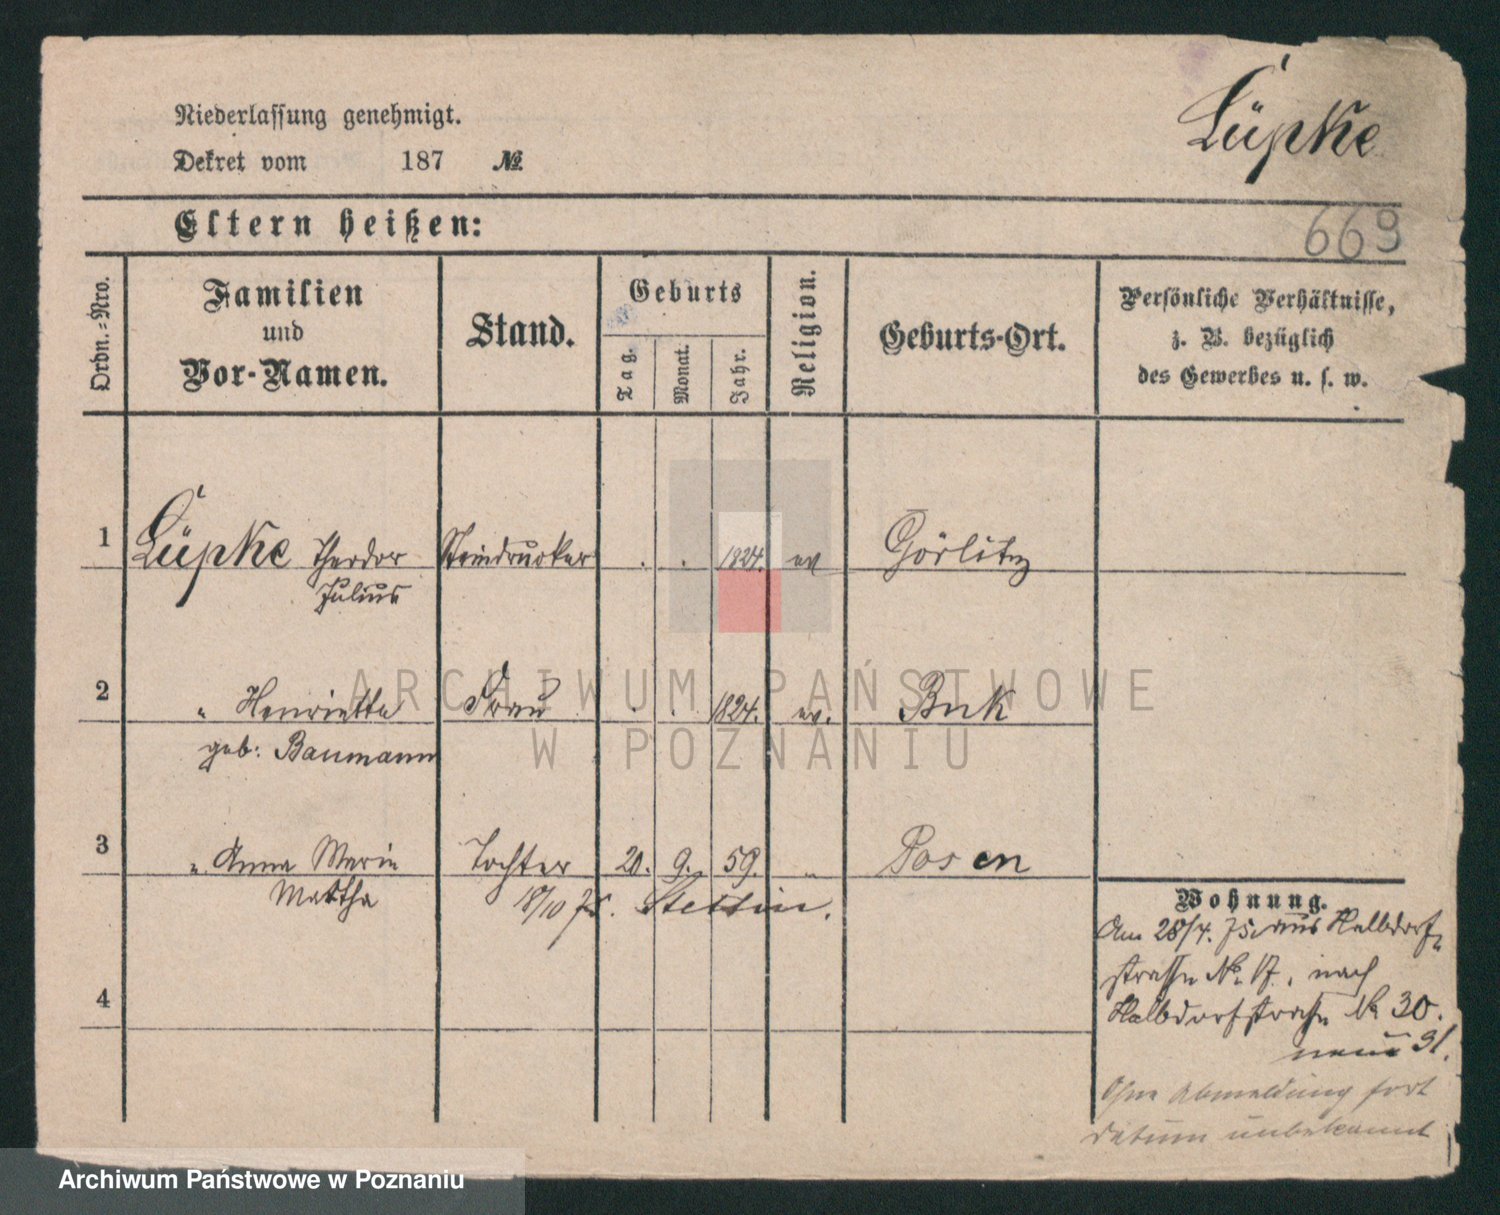 Lüpke
Niederlassung genehmigt.
Dekret vom 187 №
Eltern heißen:
669
Ordn.-Nro.
Familien
und
Vor-Namen.
Stand.
Geburts
Tag.
Monat.
Jahr.
Religion.
Geburts-Ort.
Persönliche Verhältnisse,
z. B. bezüglich
des Gewerbes u. s. w.
1 Lüpke Theodor Steindrucker . . 1824. ev Görlitz
Julius
2 " Henriette Frau . . 1824. ev. Buk
geb: Baumann
3 " Anna Marie Tochter 20. 9. 59. " Posen
Martha 18/10 75. Stettin.
4
Wohnung.
Am 28/4. 75. aus Halbdorf-
strasse No. 17, nach
Halbdorfstrasse No 30.
neue 31.
Ohne Abmeldung fort
datum unbekannt
ARCHIWUM PAŃSTWOWE
W POZNANIU
Archiwum Państwowe w Poznaniu